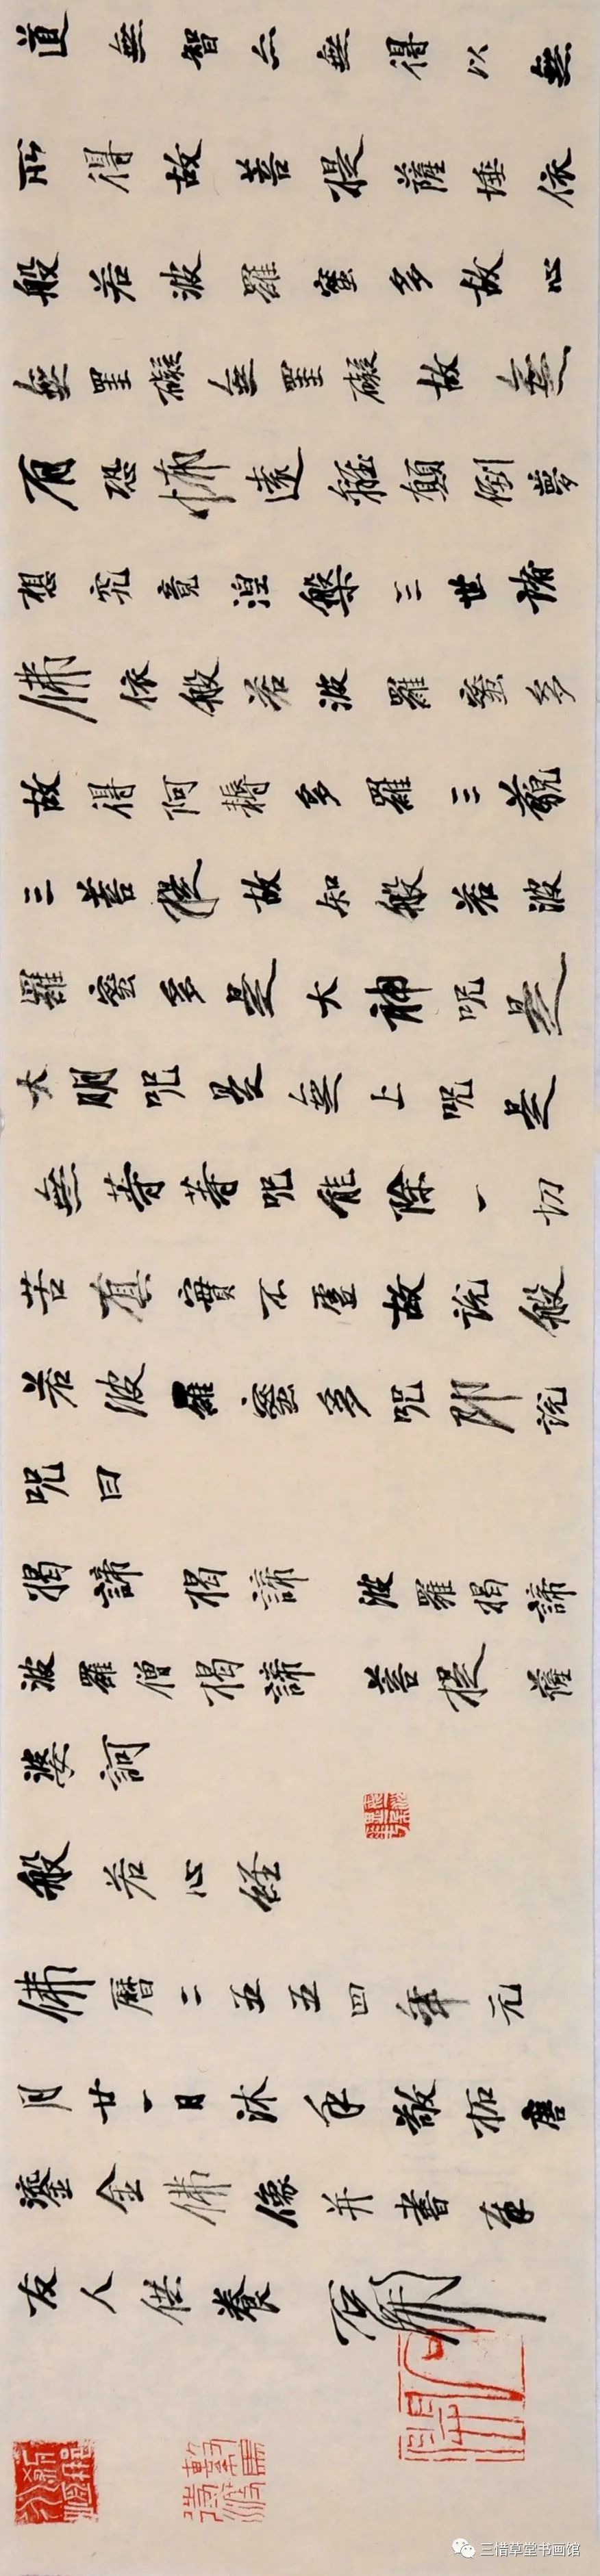 道無智亦無得以無
所得故菩提薩埵依
般若波羅蜜多故心
無罣礙無罣礙故無
有恐怖遠離顛倒夢
想究竟涅槃三世諸
佛依般若波羅蜜多
故得阿耨多羅三藐
三菩提故知般若波
羅蜜多是大神咒是
大明咒是無上咒是
無等等咒能除一切
苦真實不虛故說般
若波羅蜜多咒即說
咒曰
揭諦 揭諦 波羅揭諦
波羅僧揭諦 菩提薩
婆訶
般若心經
佛曆二五五四年元
月廿一日沐手敬拓唐
鎏金佛像并書奉
友人供養
三惜草堂书画馆